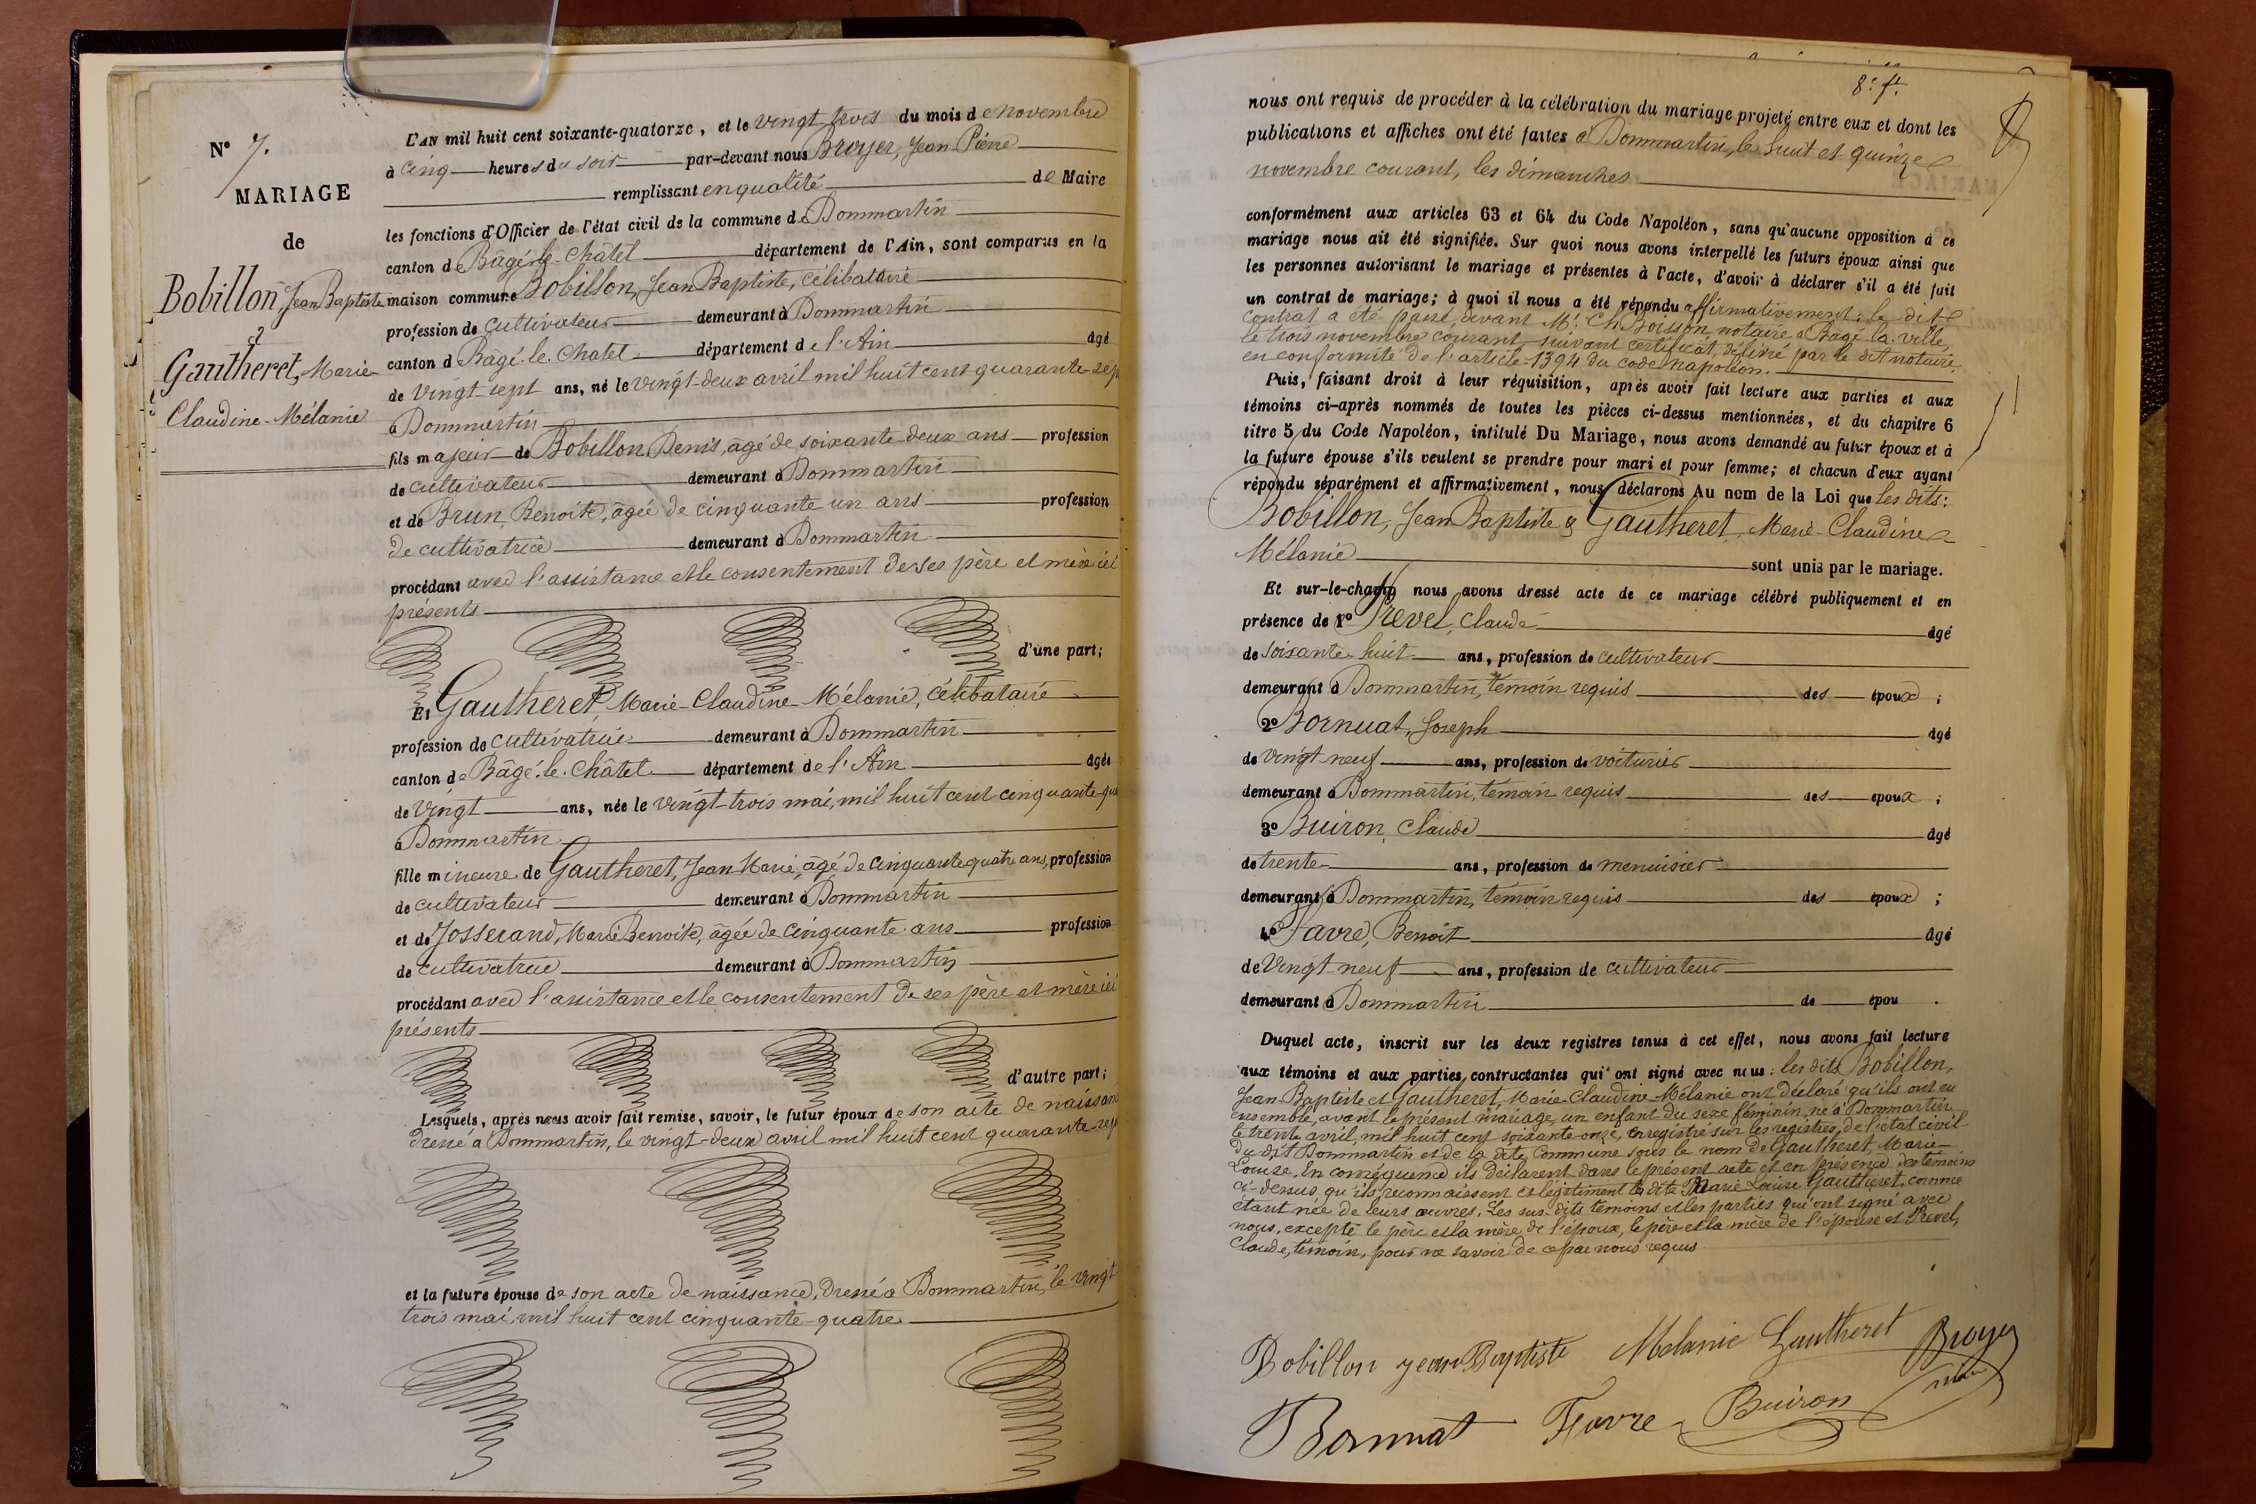 N° 7.
MARIAGE
de
Bobillon, Jean Baptiste
&
Gautheret, Marie
Claudine-Mélanie
L'AN mil huit cent soixante-quatorze, et le vingt trois du mois de novembre
à cinq heures du soir par-devant nous Broyer, Jean-Pierre
remplissant en qualité de Maire
les fonctions d'Officier de l'état civil de la commune de Dommartin
canton de Bâgé-le-Châtel département de l'Ain, sont comparus en la
maison commune Bobillon, Jean Baptiste, célibataire
profession de cultivateur demeurant à Dommartin
canton d Bâgé-le-Chatel département de l'Ain âgé
de vingt-sept ans, né le vingt-deux avril mil huit cent quarante-sep
à Dommartin
fils majeur de Bobillon Denis, âgé de soixante-deux ans profession
de cultivateur demeurant à Dommartin
et de Brun, Benoite, âgée de cinquante un ans profession
de cultivatrice demeurant à Dommartin
procédant avec l'assistance et le consentement de ses père et mère ici
présents
d'une part;
Et Gautheret, Marie-Claudine-Mélanie, célibataire
profession de cultivatrice demeurant à Dommartin
canton de Bâgé-le-Châtel département de l'Ain âgée
de vingt ans, née le vingt-trois mai, mil huit cent cinquante-qua
à Dommartin
fille mineure de Gautheret, Jean Marie, âgé de cinquante quatre ans, profession
de cultivateur demeurant à Dommartin
et de Josserand, Marie Benoite, âgée de cinquante ans profession
de cultivatrice demeurant à Dommartin
procédant avec l'assistance et le consentement de ses père et mère ici
présents
d'autre part;
Lesquels, après nous avoir fait remise, savoir, le futur époux de son acte de naissan
dressé à Dommartin, le vingt-deux avril mil huit cent quarante-sep
et la future épouse de son acte de naissance, dressé à Dommartin, le vingt
trois mai, mil huit cent cinquante-quatre
8e f.
nous ont requis de procéder à la célébration du mariage projeté entre eux et dont les
publications et affiches ont été faites à Dommartin, les huit et quinze
novembre courant, les dimanches
conformément aux articles 63 et 64 du Code Napoléon, sans qu'aucune opposition à ce
mariage nous ait été signifiée. Sur quoi nous avons interpellé les futurs époux ainsi que
les personnes autorisant le mariage et présentes à l'acte, d'avoir à déclarer s'il a été fait
un contrat de mariage; à quoi il nous a été répondu affirmativement; le dit
contrat a été passé devant Me. Ch. Boisson, notaire à Bâgé-la-ville,
le trois novembre courant, suivant certificat, délivré par le dit notaire,
en conformité de l'article 1394 du code napoléon.
Puis, faisant droit à leur réquisition, après avoir fait lecture aux parties et aux
témoins ci-après nommés de toutes les pièces ci-dessus mentionnées, et du chapitre 6
titre 5 du Code Napoléon, intitulé Du Mariage, nous avons demandé au futur époux et à
la future épouse s'ils veulent se prendre pour mari et pour femme; et chacun d'eux ayant
répondu séparément et affirmativement, nous déclarons Au nom de la Loi que les dits:
Bobillon, Jean Baptiste & Gautheret, Marie-Claudine
Mélanie sont unis par le mariage.
Et sur-le-champ nous avons dressé acte de ce mariage célébré publiquement et en
présence de 1° Prevel, Claude âgé
de soixante-huit ans, profession de cultivateur
demeurant à Dommartin, témoin requis des époux;
2° Bornuat, Joseph âgé
de vingt-neuf ans, profession de voiturier
demeurant à Dommartin, témoin requis des époux;
3° Buiron, Claude âgé
de trente ans, profession de menuisier
demeurant à Dommartin, témoin requis des époux;
4° Favre, Benoit âgé
de vingt-neuf ans, profession de cultivateur
demeurant à Dommartin de épou.
Duquel acte, inscrit sur les deux registres tenus à cet effet, nous avons fait lecture
aux témoins et aux parties contractantes qui ont signé avec nous: les dits Bobillon,
Jean Baptiste et Gautheret, Marie-Claudine-Mélanie ont déclaré qu'ils ont eu
ensemble, avant le présent mariage, un enfant du sexe féminin, né à Dommartin
le trente avril, mil huit cent soixante-onze, enregistré sur les registres de l'état civil
du dit Dommartin et de la dite commune sous le nom de Gautheret, Marie-
Louise. En conséquence ils déclarent dans le présent acte et en présence des témoins
ci-dessus, qu'ils reconnaissent et légitiment la dite Marie Louise Gautheret, comme
étant née de leurs œuvres. Les sus-dits témoins et les parties qui ont signé avec
nous, excepté le père et la mère de l'époux, le père et la mère de l'épouse et Prevel,
Claude, témoin, pour ne savoir de ce par nous requis
Bobillon jean Baptiste Melanie Gautheret Broyer
maire
Bornuat Favre Buiron